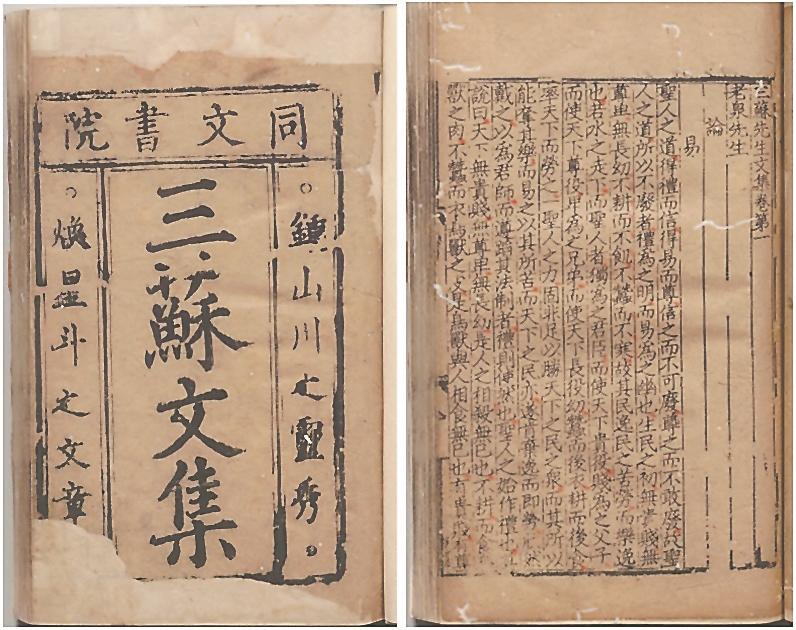 同文書院
鍾山川之靈秀
三蘇文集
煥星斗之文章
三蘇先生文集卷第一
老泉先生
論
易
聖人之道得禮而信得易而尊信之而不可廢尊之而不敢廢故聖
人之道所以不廢者禮為之明而易為之幽也生民之初無貴賤無
尊卑無長幼不耕而不飢不蠶而不寒故其民逸民之苦勞而樂逸
也若水之走下而聖人者獨為之君臣而使天下貴役賤為之父子
而使天下尊役卑為之兄弟而使天下長役幼蠶而後衣耕而後食
率天下而勞之一聖人之力固非足以勝天下之民之眾而其所以
能奪其樂而易之以其所苦而天下之民亦遂肯棄逸而即勞然
戴之以為君師而遵蹈其法制者禮則使然也聖人之始作禮也
說曰天下無貴賤無尊卑無長幼是人之相殺無已也不耕而食
獸之肉不蠶而衣鳥獸之皮是鳥獸與人相食無已也有貴賤